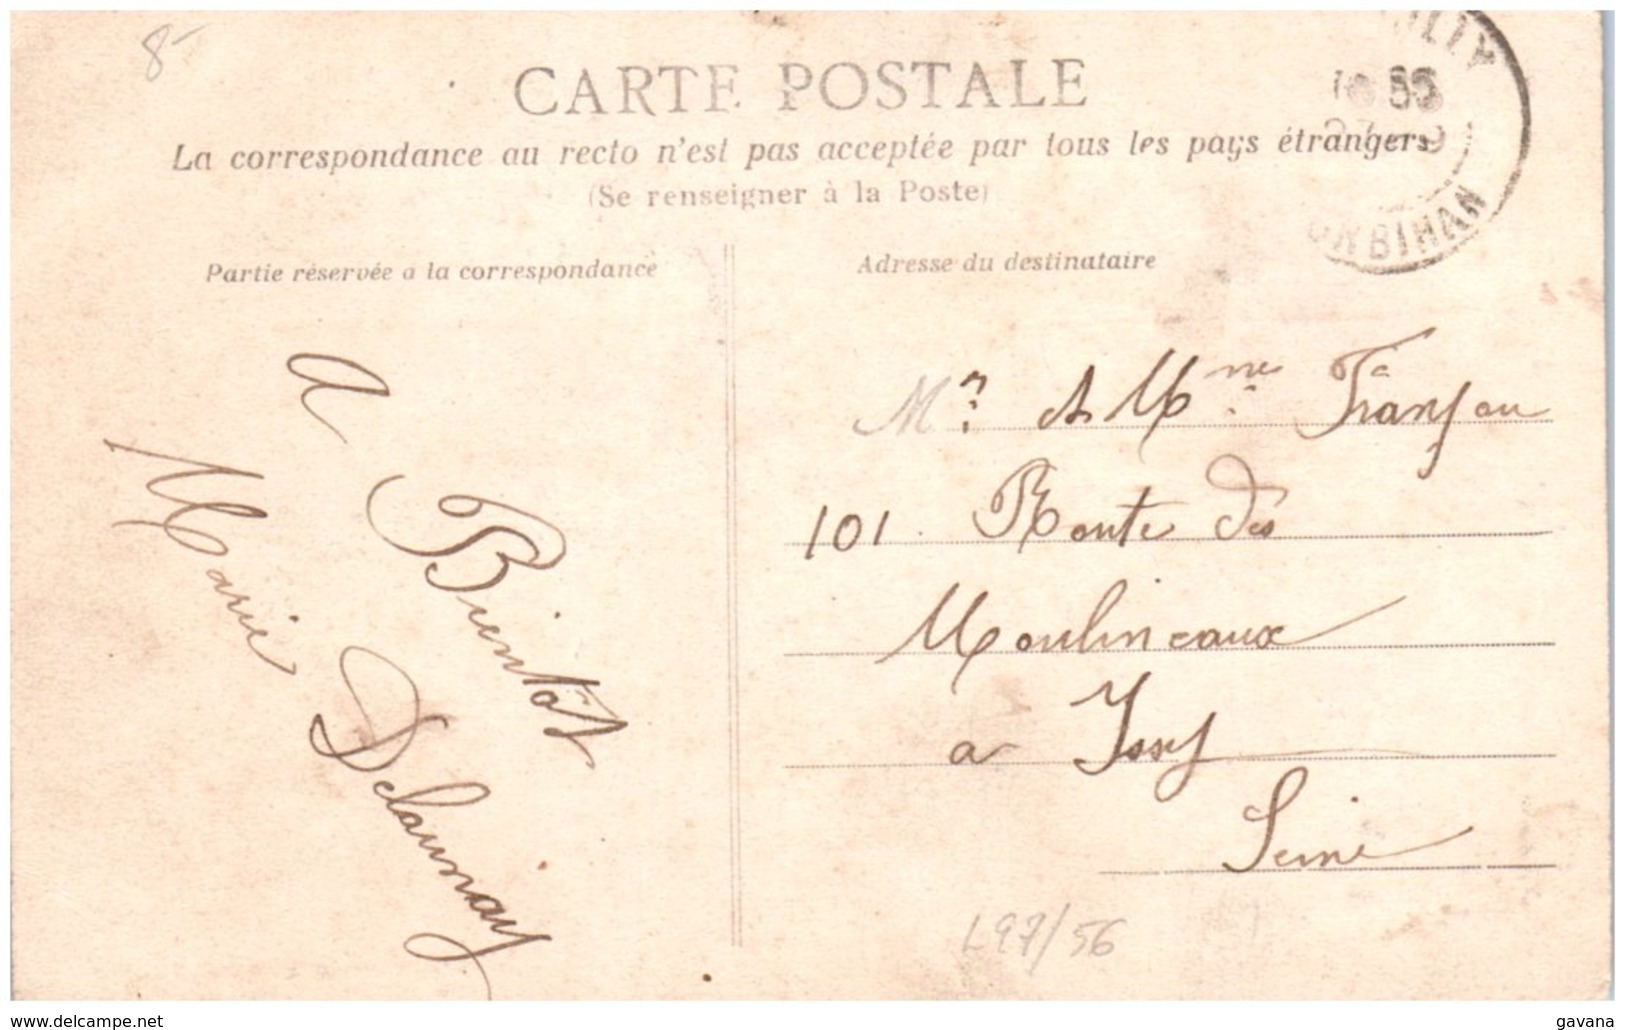 8-
CARTE POSTALE
La correspondance au recto n'est pas acceptée par tous les pays étrangers
(Se renseigner à la Poste)
ORBIHAN
Partie réservée a la correspondance
Adresse du destinataire
A Bientôt
Marie Delaunay
Mr et Mme
101. Route des
Moulineaux
a Issy
Seine
L97/56
www.delcampe.net
gavana